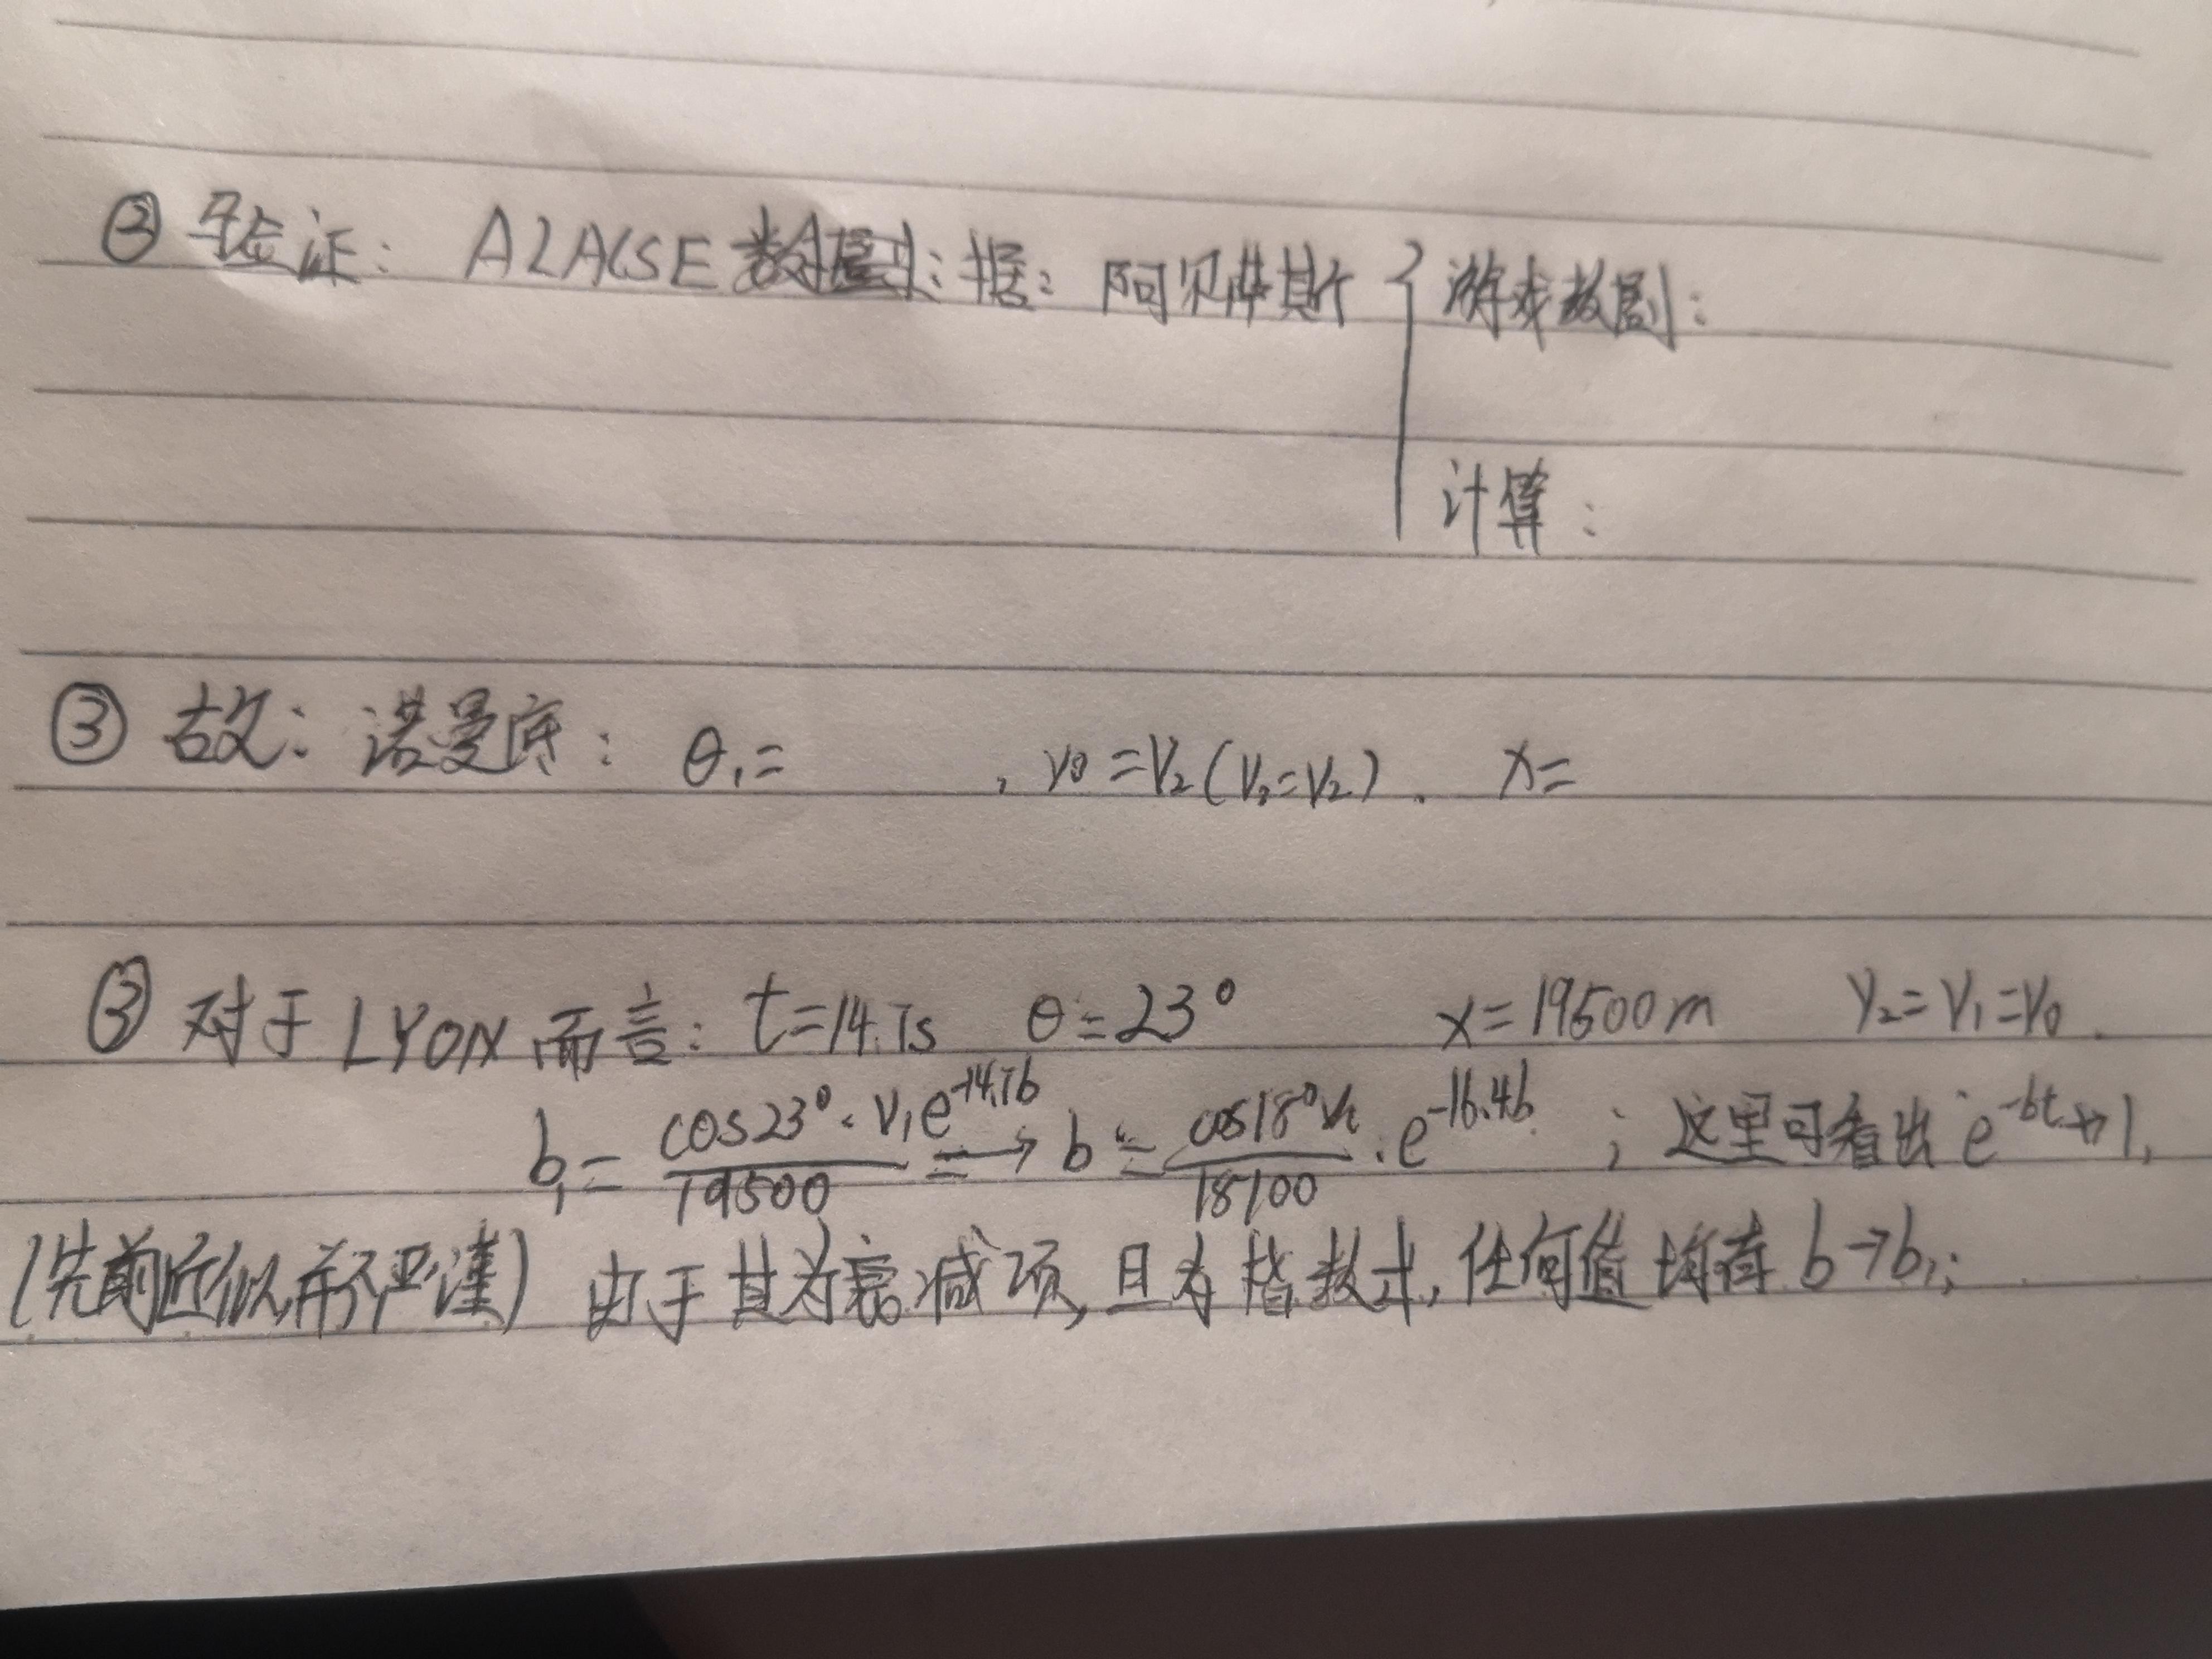 ② 验证: ALACSE 数据: 阿贝萨斯 { 游戏数剧:
计算:
③ 故: 诺曼底: θ₁= , v0=V₂(V₁=V₂). x=
③ 对于LYON而言: t=14.7s θ=23° x=19500m V₂=V₁=V₀.
b₁= cos23°·V₁e^-14.7b / 19500 → b = cos18°V₁ / 18100 · e^-16.4b ; 这里可看出 e^-bt→1,
(先前近似并不严谨) 由于其为衰减项,且为指数式,任何值均有 b→b₁;